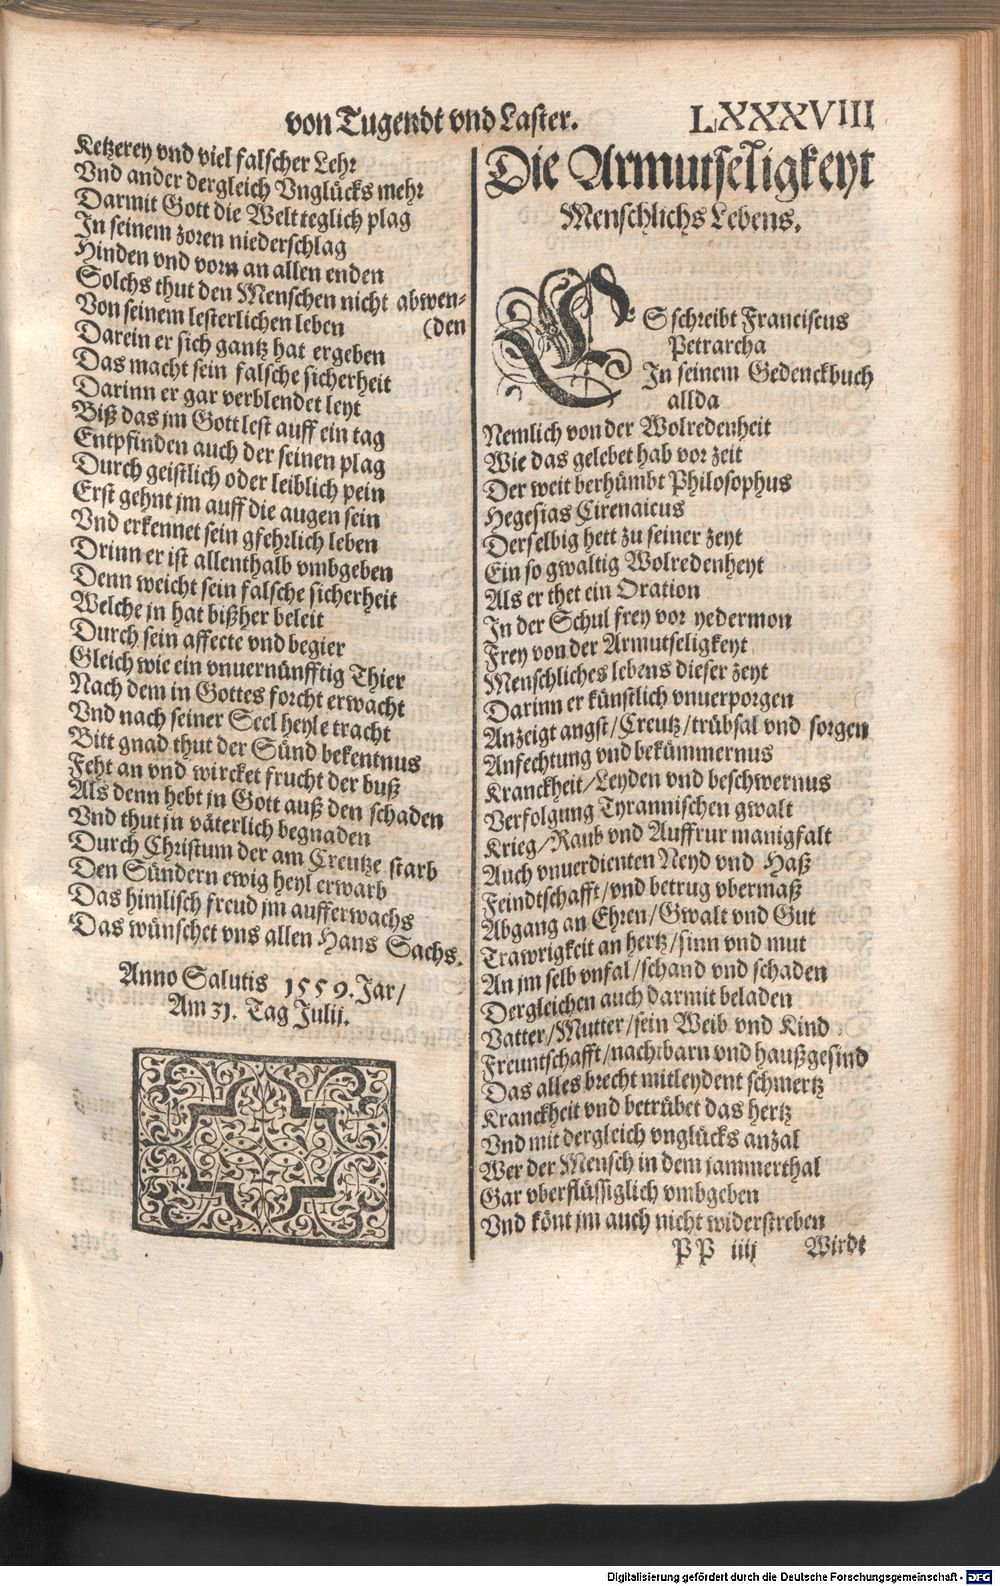 von Tugendt vnd Laster.
LXXXVIII
Ketzerey vnd viel falscher Lehr
Vnd ander dergleich Vnglücks mehr
Darmit Gott die Welt teglich plag
In seinem zoren niederschlag
Hinden vnd vorn an allen enden
Solchs thut den Menschen nicht abwen-
Von seinem lesterlichen leben (den
Darein er sich gantz hat ergeben
Das macht sein falsche sicherheit
Darinn er gar verblendet leyt
Biß das jm Gott lest auff ein tag
Entpfinden auch der seinen plag
Durch geistlich oder leiblich pein
Erst gehnt jm auff die augen sein
Vnd erkennet sein gfehrlich leben
Drinn er ist allenthalb vmbgeben
Denn weicht sein falsche sicherheit
Welche jn hat bißher beleit
Durch sein affecte vnd begier
Gleich wie ein vnuernünfftig Thier
Nach dem in Gottes forcht erwacht
Vnd nach seiner Seel heyle tracht
Bitt gnad thut der Sünd bekentnus
Feht an vnd wircket frucht der buß
Als denn hebt jn Gott auß den schaden
Vnd thut jn väterlich begnaden
Durch Christum der am Creutze starb
Den Sündern ewig heyl erwarb
Das himlisch freud jm aufferwachs
Das wünschet vns allen Hans Sachs.
Anno Salutis 1559. Jar/
Am 31. Tag Julij.
Die Armutseligkeyt
Menschlichs Lebens.
ES schreibt Franciscus
Petrarcha
In seinem Gedenckbuch
allda
Nemlich von der Wolredenheit
Wie das gelebet hab vor zeit
Der weit berhümbt Philosophus
Hegesias Cirenaicus
Derselbig hett zu seiner zeyt
Ein so gwaltig Wolredenheyt
Als er thet ein Oration
In der Schul frey vor yedermon
Frey von der Armutseligkeyt
Menschliches lebens dieser zeyt
Darinn er künstlich vnuerporgen
Anzeigt angst/Creutz/trübsal vnd sorgen
Anfechtung vnd bekümmernus
Kranckheit/Leyden vnd beschwernus
Verfolgung Tyrannischen gwalt
Krieg/Raub vnd Auffrur manigfalt
Auch vnuerdienten Neyd vnd Haß
Feindtschafft/vnd betrug vbermaß
Abgang an Ehren/Gwalt vnd Gut
Trawrigkeit an hertz/sinn vnd mut
An jm selb vnfal/schand vnd schaden
Dergleichen auch darmit beladen
Vatter/Mutter/sein Weib vnd Kind
Freuntschafft/nachtbarn vnd haußgesind
Das alles brecht mitleydent schmertz
Kranckheit vnd betrübet das hertz
Vnd mit dergleich vnglücks anzal
Wer der Mensch in dem jammerthal
Gar vberflüssiglich vmbgeben
Vnd könt jm auch nicht widerstreben
PP iiij
Wirdt
Digitalisierung gefördert durch die Deutsche Forschungsgemeinschaft - DFG